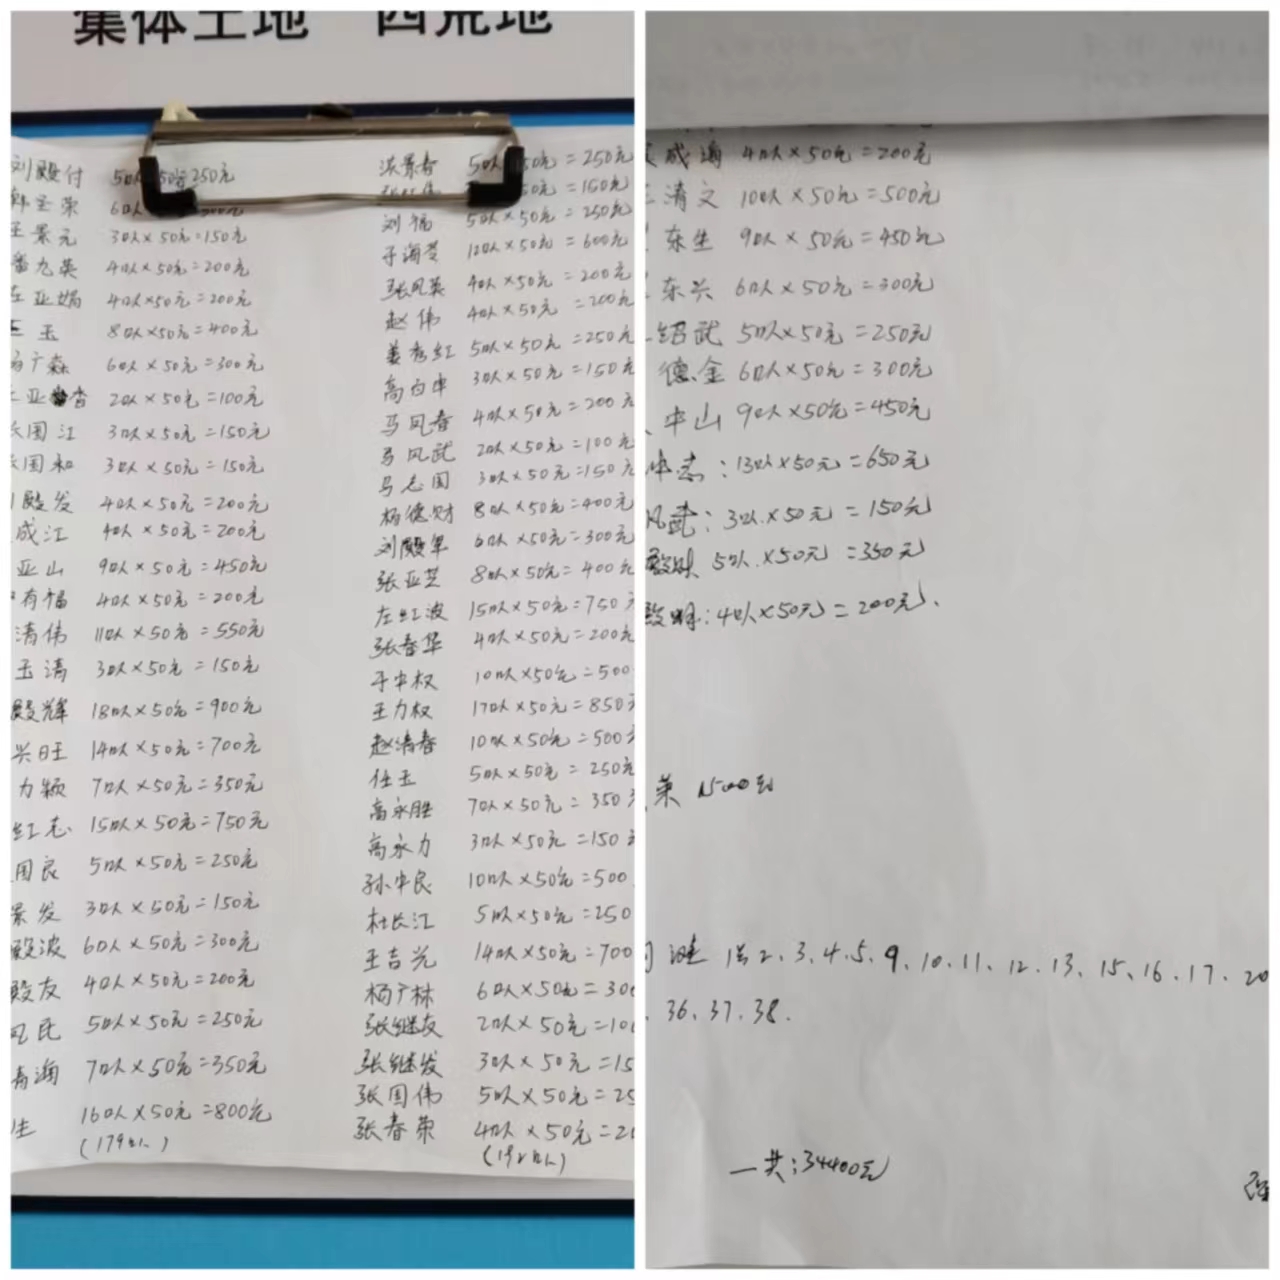 集体土地 四荒地
刘殿付 5口人 50元 250元
6口人
王景元 3口人×50元=150元
九英 4口人×50元=200元
亚娟 4口人×50元=200元
玉 8口人×50元=400元
杨广森 6口人×50元=300元
亚香 2口人×50元=100元
国江 3口人×50元=150元
国和 3口人×50元=150元
殿发 4口人×50元=200元
成江 4口人×50元=200元
亚山 9口人×50元=450元
有福 4口人×50元=200元
清伟 11口人×50元=550元
玉清 3口人×50元=150元
殿辉 18口人×50元=900元
兴旺 14口人×50元=700元
力颖 7口人×50元=350元
红志 15口人×50元=750元
国良 5口人×50元=250元
景发 3口人×50元=150元
殿波 6口人×50元=300元
殿友 4口人×50元=200元
民 5口人×50元=250元
海 7口人×50元=350元
生 16口人×50元=800元
(179口人)
洪景春 5口人 50元=250元
50元=150元
刘福 5口人×50元=250元
于海芩 12口人×50元=600元
张凤英 4口人×50元=200元
赵伟 4口人×50元=200元
姜秀红 5口人×50元=250元
高白申 3口人×50元=150元
马凤春 4口人×50元=200元
马凤武 2口人×50元=100元
马志国 3口人×50元=150元
杨德财 8口人×50元=400元
刘殿军 6口人×50元=300元
张亚芝 8口人×50元=400元
左红波 15口人×50元=750
张春华 4口人×50元=200元
于中权 10口人×50元=500
王力权 17口人×50元=850
赵清春 10口人×50元=500
任玉 5口人×50元=250元
高永胜 7口人×50元=350
高永力 3口人×50元=150
孙中良 10口人×50元=500
杜长江 5口人×50元=250
王吉兴 14口人×50元=700
杨广林 6口人×50元=300
张继友 2口人×50元=10
张继发 3口人×50元=15
张国伟 5口人×50元=25
张春荣 4口人×50元=20
成海 4口人×50元=200元
清文 10口人×50元=500元
东生 9口人×50元=450元
东兴 6口人×50元=300元
绍武 5口人×50元=250元
德金 6口人×50元=300元
中山 9口人×50元=450元
中志:13口人×50元=650元
凤武:3口人×50元=150元
5口人×50元=350元
殿明:4口人×50元=200元.
荣 1500元
2、3、4、5、9、10、11、12、13、15、16、17、20
36、37、38.
一共:34400元